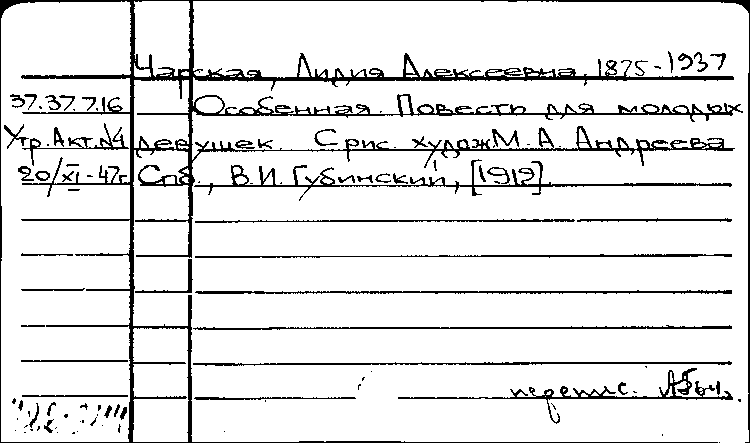 Чарская, Лидия Алексеевна, 1875-1937
37.37.7.16 Особенная. Повесть для молодых
Утр. Акт. №4 девушек. С рис. худож М. А. Андреева
20/XI-47г. Спб., В. И. Губинский, [1912]
перепис.